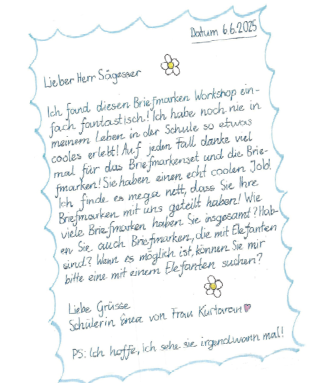 Datum 6.6.2025
Lieber Herr Sägesser
Ich fand diesen Briefmarken Workshop ein-
fach fantastisch! Ich habe noch nie in
meinem Leben in der Schule so etwas
cooles erlebt! Auf jeden Fall danke viel
mal für das Briefmarkenset und die Brie-
fmarken! Sie haben einen echt coolen Job!
Ich finde es mega nett, dass Sie Ihre
Briefmarken mit uns geteilt haben! Wie
viele Briefmarken haben Sie insgesamt? Hab-
en Sie auch Briefmarken, die mit Elefanten
sind? Wenn es möglich ist, können Sie mir
bitte eine mit einem Elefanten suchen?
Liebe Grüsse
Schülerin von Frau
PS: Ich hoffe, Ich sehe sie irgendwann mal!